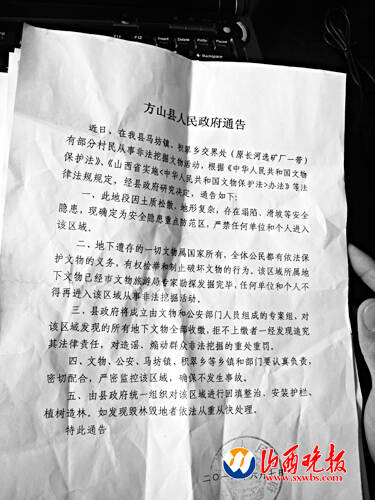 方山县人民政府通告
近日，在我县马坊镇、积翠乡交界处（原长河选矿厂一带）
有部分村民从事非法挖掘文物活动，根据《中华人民共和国文物
保护法》、《山西省实施<中华人民共和国文物保护法>办法》等法
律法规规定，经县政府研究决定，通告如下：
一、此地段因土质松散、地形复杂，存在塌陷、滑坡等安全
隐患，现确定为安全隐患重点防范区，严禁任何单位和个人进入
该区域。
二、地下遗存的一切文物属国家所有，全体公民都有依法保
护文物的义务，有权检举和制止破坏文物的行为。该区域所属地
下文物已经市文物旅游局专家勘探发掘完毕，任何单位和个人不
得再进入该区域从事非法挖掘活动。
三、县政府将成立由文物和公安部门人员组成的专案组，对
该区域发现的所有地下文物全部收缴，拒不上缴者一经发现追究
其法律责任，对造谣、煽动群众非法挖掘的重处重罚。
四、文物、公安、马坊镇、积翠乡等乡镇和部门要认真负责，
密切配合，严密监控该区域，确保不发生事故。
五、由县政府统一组织对该区域进行回填整治、安装护栏、
植树造林。如发现毁林毁地者依法从重从快处理。
特此通告
二〇一
山西晚报
www.sxwbs.com